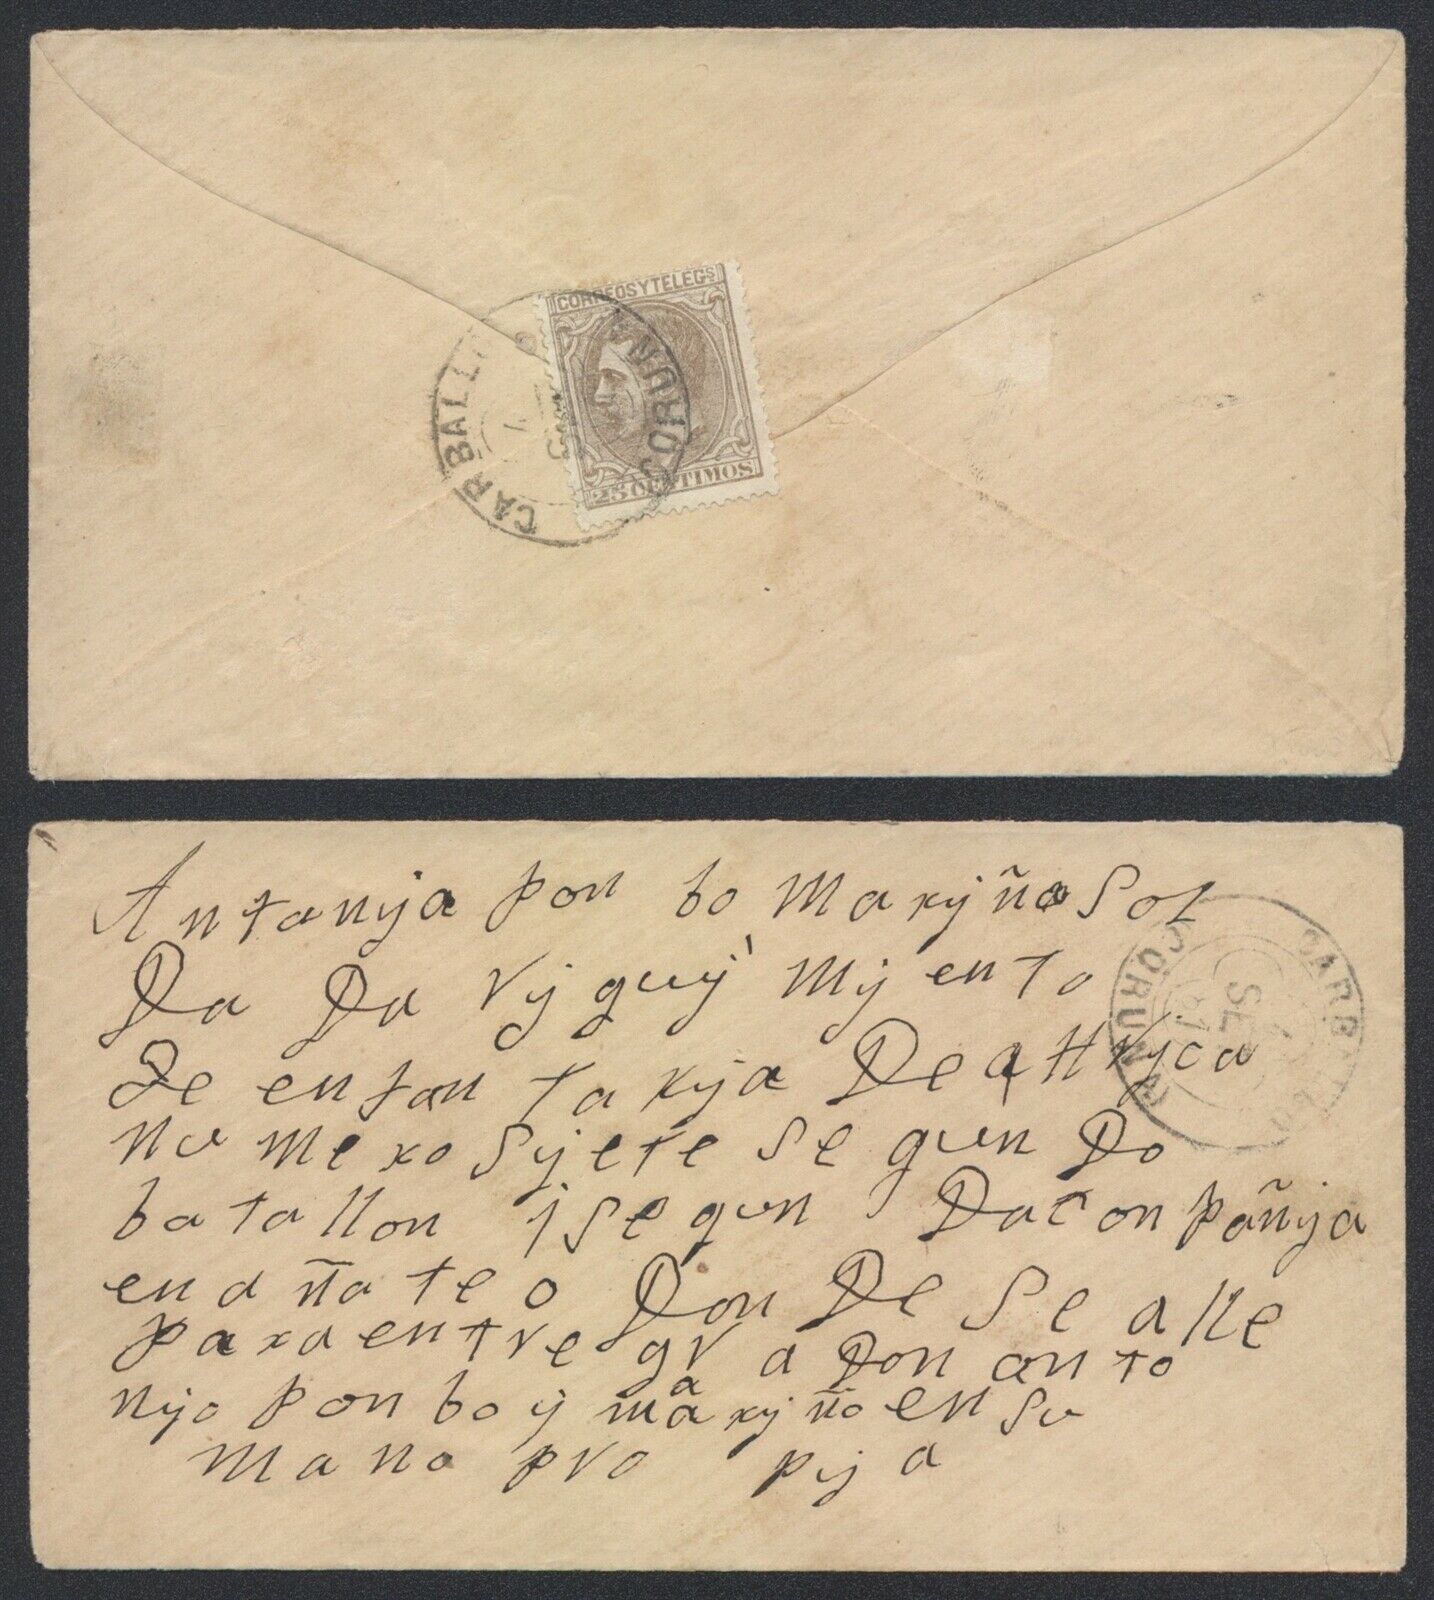 CORREOS Y TELEGS
25 CENTIMOS
CARBALL
CORUÑA
Antanyja pon bo Maryña Sol
Da Da ryguy̔ Myento
De enfantaryja De affryca
nu mero Syete se gun Do
batallon y segun DaConpañyja
en a ñateo Don De Se alle
para entre gr a Don anto
nyo pon bo y maaryño en Su
mano pro pyja
CARB
CORUÑA
SE
81